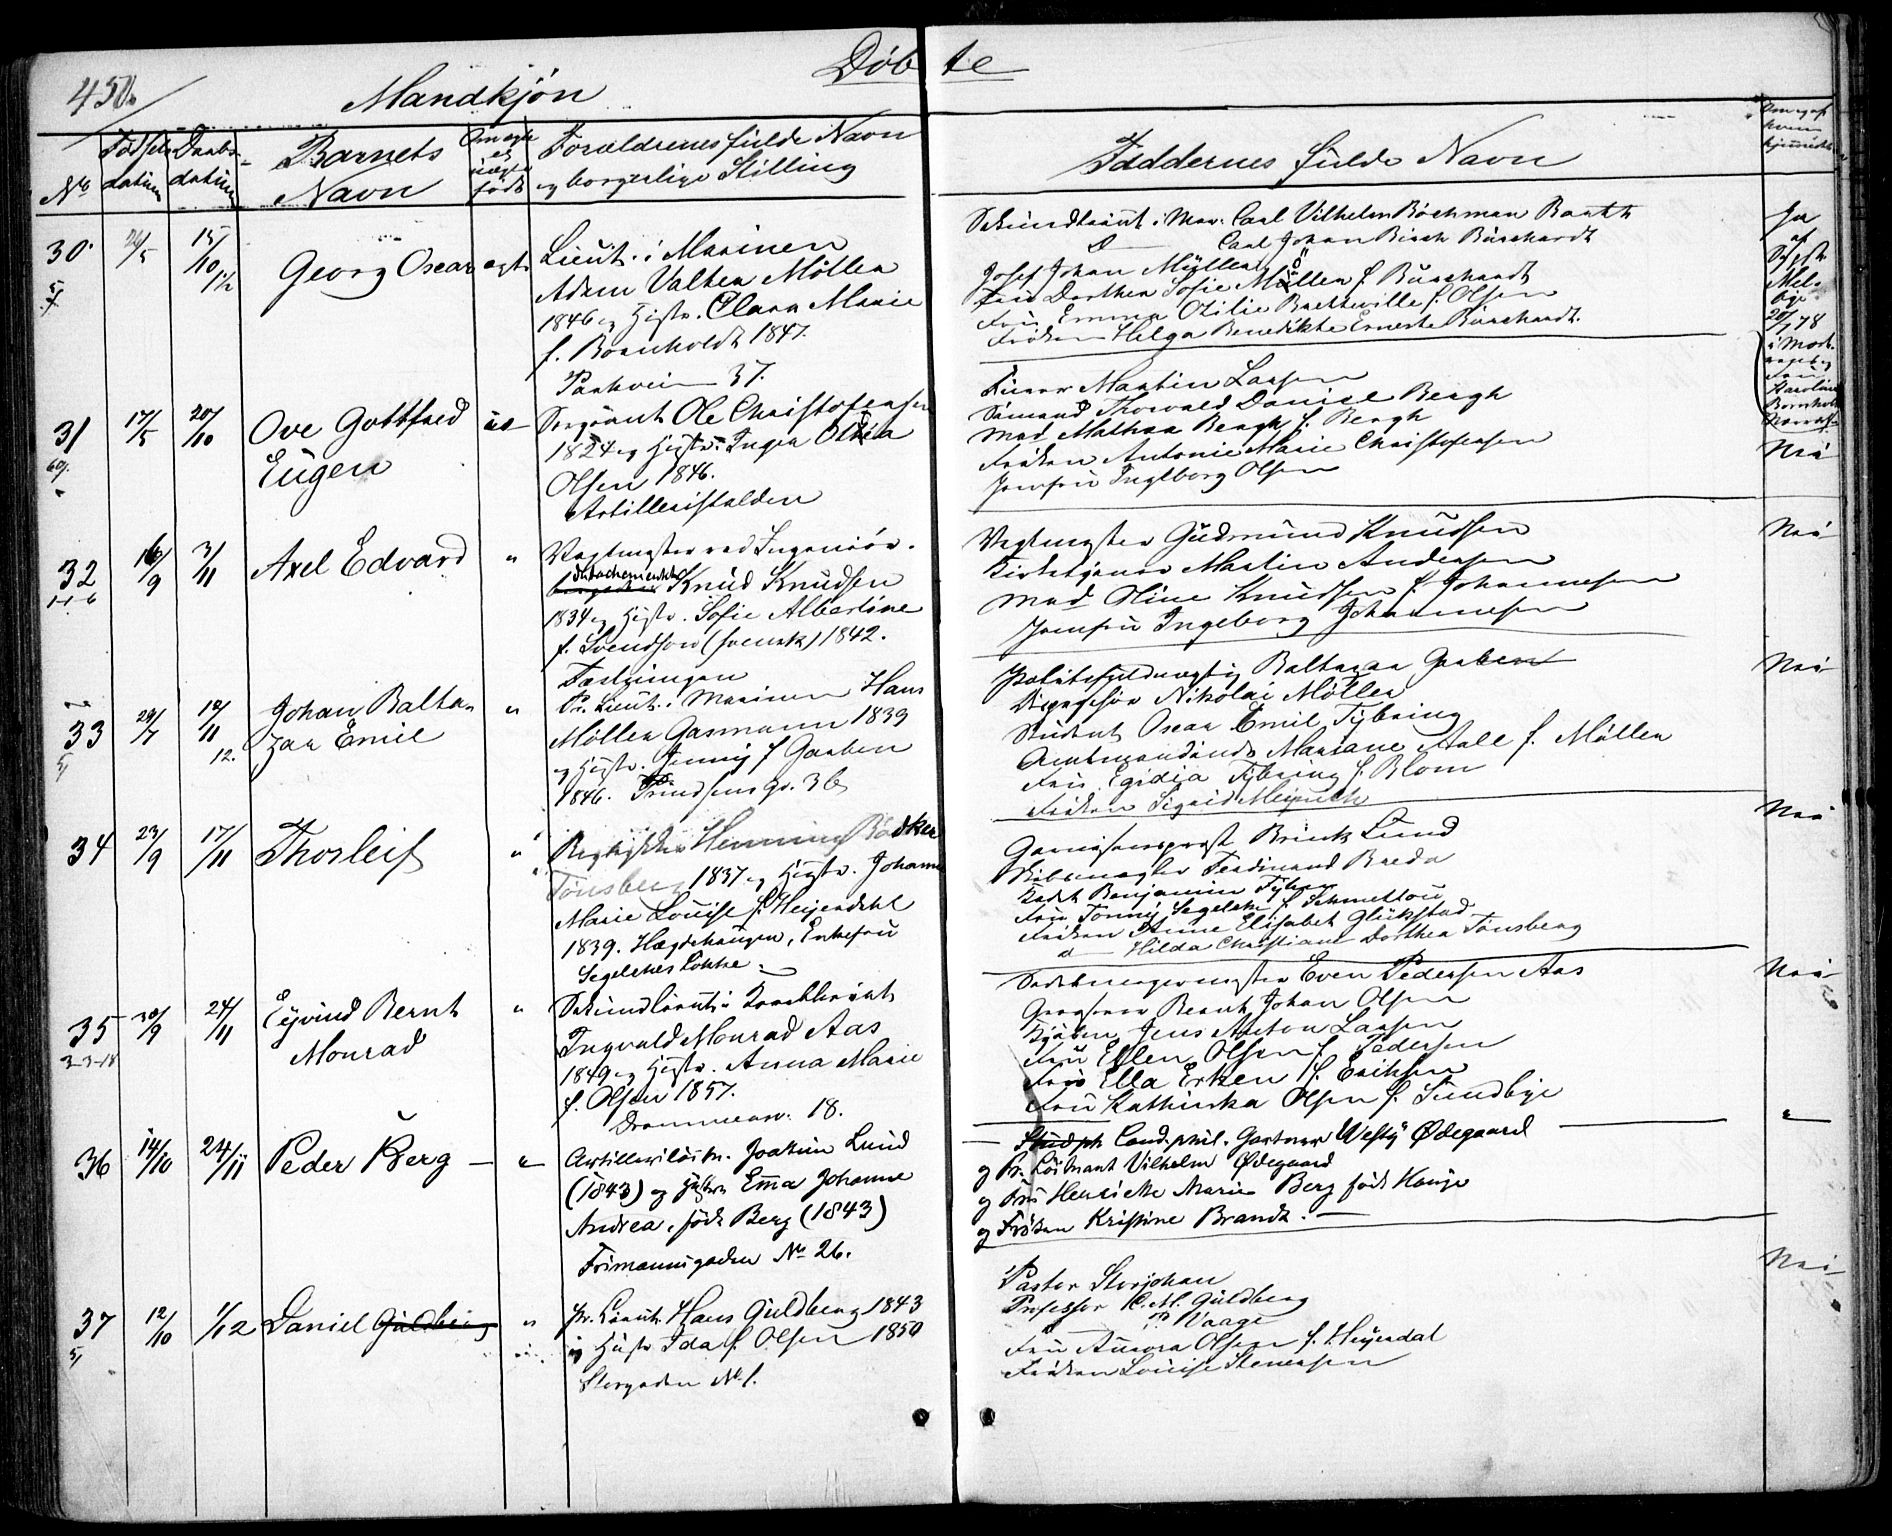 450.
Døbte
Mandkjøn
No
Fødsels datum
Daabs datum
Barnets Navn
Om ægte el. uægte født
Forældrenes fulde Navn og borgerlige Stilling
Faddernes fulde Navn
30. 24/5 15/10 Georg Oscar ægt
Lieut. i Marinen
Adam Valter Møller
1846 og Hustr. Clara Marie
f. Bornholdt 1847.
Parkveien 37.
Sekundlieut. i Mar. Carl Vilhelm Böckman Barth
D — Carl Johan Birch Burchardt
Josef Johan Müller
Fru Dorthea Sofie Møller f. Burchardt
Fru Emma Otilie Bretteville f. Olsen
Frøken Helga Benedikte Erneste Burchardt.
Ja
af
20/1 78
Karoline
Bornholdt
31 17/5 20/10 Ove Gottfred Eugen
Sergeant Ole Christofersen
1824 og Hustr. Inger Olea
Olsen 1846.
Artilleristalden
Martin Larsen
Sømand Thorvald Daniel Bergh
Mad Mathea Bergh f. Bergh
Frøken Antonie Marie Christofersen
Jomfru Ingeborg Olsen
Nei
32 16/9 3/11 Axel Edvard "
1-1-6
Vagtmester ved Ingeniør.
detachementet Knud Knudsen
1834 og Hustr. Sofie Albertine
f. Svendson (svensk) 1842.
Fæstningen
Vagtmester Gudmund Knudsen
Kirketjener Martin Andersen
Mad Oline Knudsen f. Johannesen
Jomfru Ingeborg Johannesen
Nei
33 29/7 12/11 Johan Baltazar Emil "
12.
Pr. Lieut. i Marinen Hans
Møller Gasmann 1839
og Hustr. Jenny f Gaarben
1846. gd. 36
Politifuldmægtig Baltazar
Nikolai Møller
Student Oscar Emil Tybring
Amtmandinde Mariane Aall f. Møller
Fru Egidia Tybring f. Blom
Frøken Sigrid
Nei
34 23/9 17/11 Thorleif "
Henning Bödker
Tønsberg 1837 og Hustr. Johanne
Marie Louise f. Heyerdahl
1839. Hægdehaugen, Enkefru
Segelckes Løkke.
Garnisonsprest Brinck Lund
Ferdinand Breda
Kadet Benjamin
Fru Segelcke f. Schmettou
Frøken Anne Elisabet Glückstad
d — Hilda Christiane Dorthea Tønsberg
Nei
35 30/9 24/11 Eyvind Bernt Monrad "
3-3-18
Sekundlieut i
Ingvald Monrad Aas
1849 og Hustr. Anna Marie
f. Olsen 1857.
Drammensv. 18.
Even Pedersen Aas
Grosserer Bernt Johan Olsen
Jens Anton Larsen
Fru Ellen Olsen f. Pedersen
Fru Ella f. Eriksen
Fru Kathinka Olsen f. Sundbye
Nei
36 14/10 24/11 Peder Berg — "
Artillerilöitn. Joakim Lund
(1843) og Hustru Emma Johanne
Andrea, født Berg (1843)
Frimannsgaden No 26.
— Stud ph Cand. phil. Gartner Westy Ødegaard
og Pr. Löitnant Vilhelm Ødegaard
og Fru Henriette Marie Berg født Hauge
og Frøken Kristine Brandt. —
"
37 12/10 1/12 Daniel Guldberg "
5/
Pr. Lieut. Hans Guldberg 1843
og Hustr Ida f. Olsen 1850
Storgaden No 1.
Pastor Storjohan
Professor C. M. Guldberg
" P. Waage
Fru Aurora Olsen f. Heyerdal
Frøken Louise Stenersen
Nei